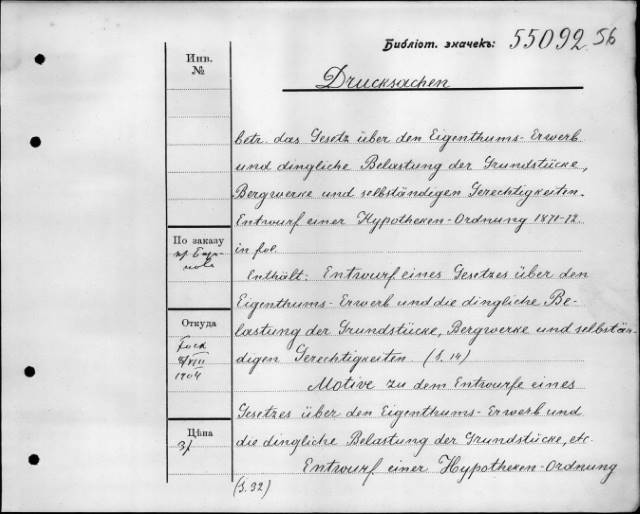 Библіот. значекъ: 55092 Sb
Инв.
№
Drucksachen
betr. das Gesetz über den Eigenthums-Erwerb
und dingliche Belastung der Grundstücke,
Bergwerke und selbständigen Gerechtigkeiten.
Entwurf einer Hypotheken-Ordnung 1871-72.
in fol.
По заказу
Enthält: Entwurf eines Gesetzes über den
Eigenthums-Erwerb und die dingliche Be-
lastung der Grundstücke, Bergwerke und selbstän-
digen Gerechtigkeiten (S. 14)
Откуда
Fock
VIII
1904
Motive zu dem Entwurfe eines
Gesetzes über den Eigenthums-Erwerb und
die dingliche Belastung der Grundstücke, etc.
Цѣна
3/
Entwurf einer Hypotheken-Ordnung
(S. 32)